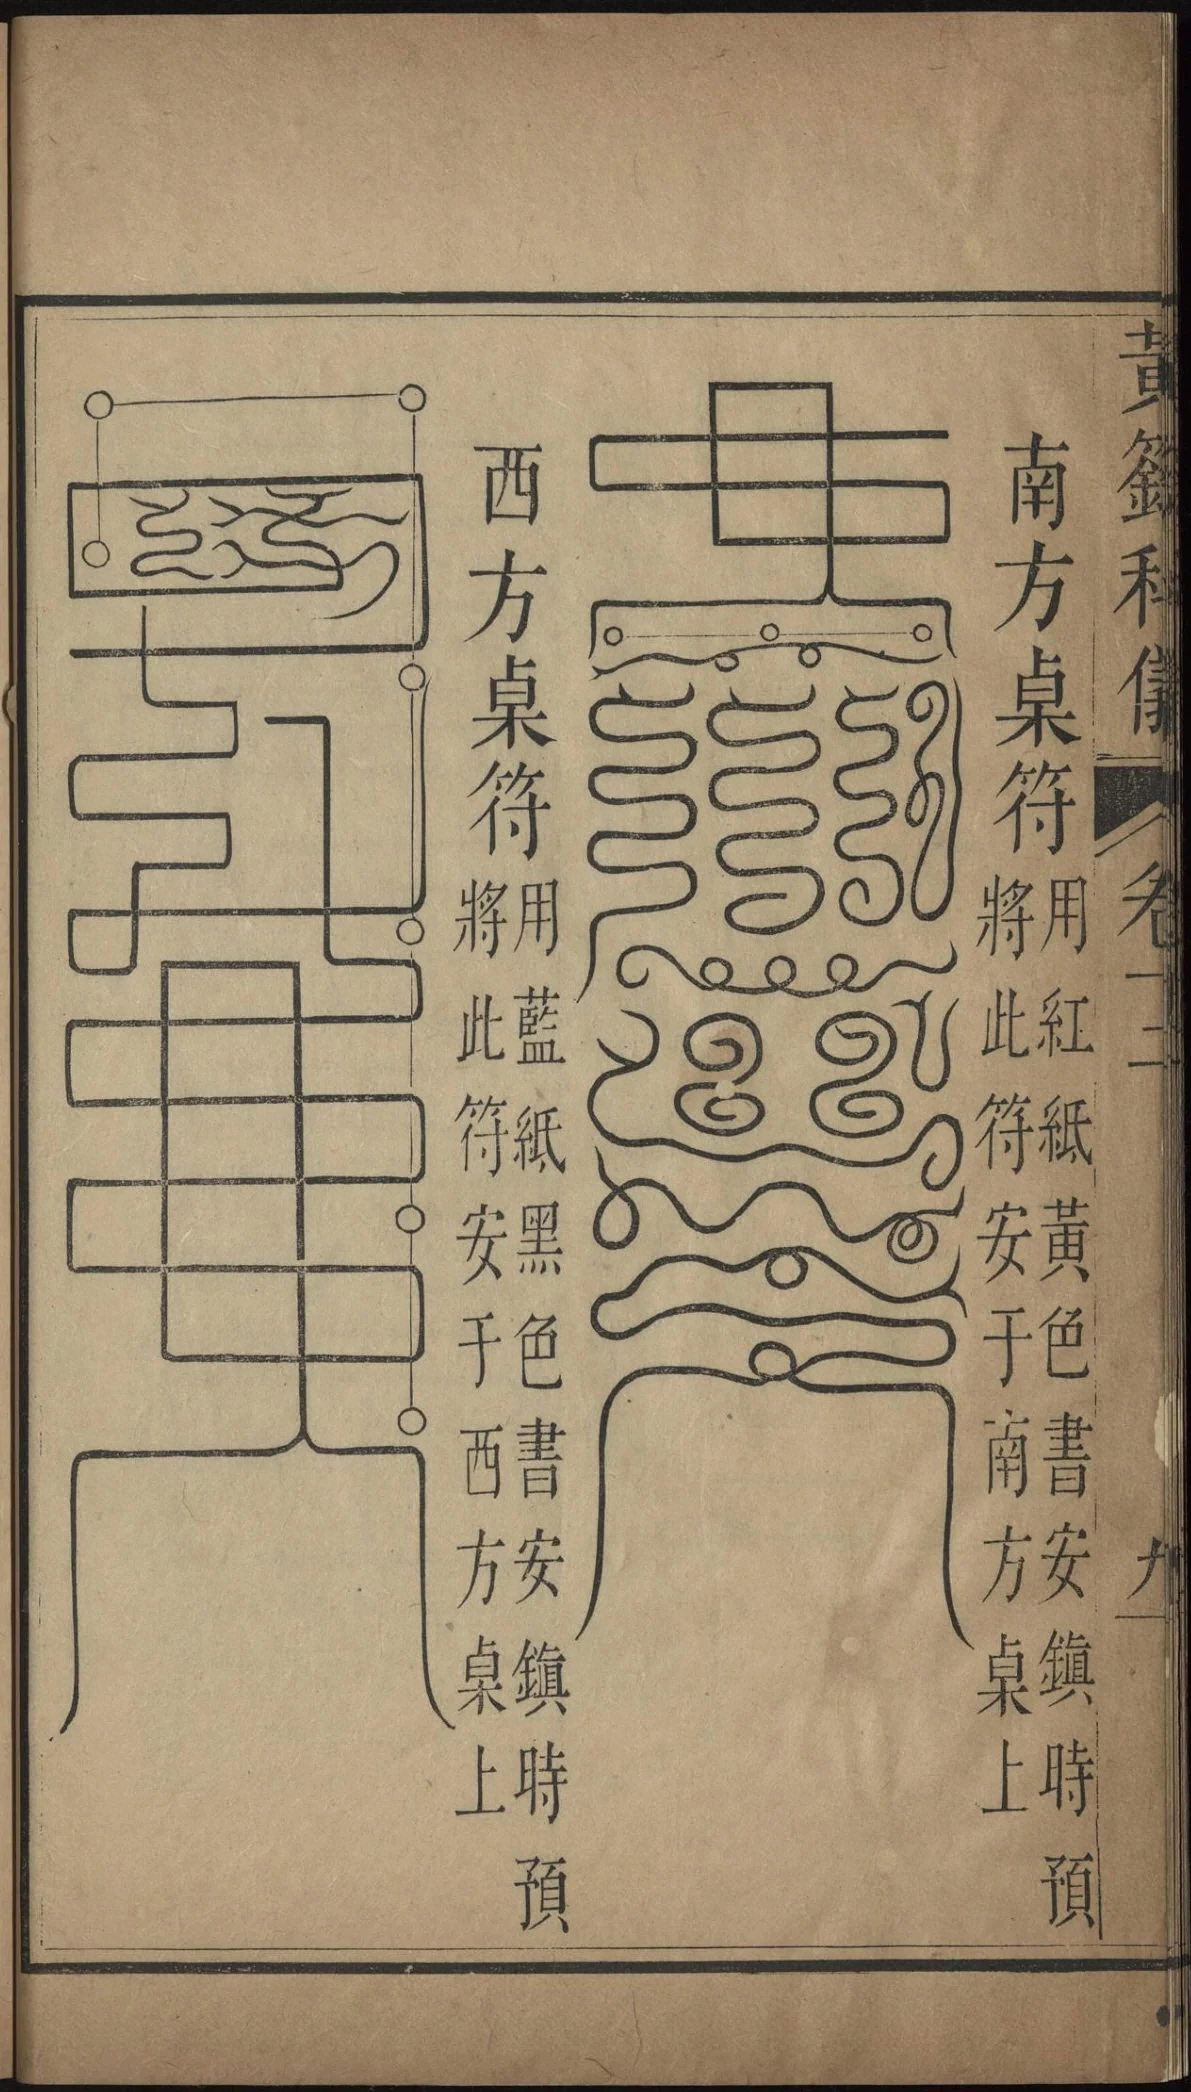 黃籙科儀 卷十二 九
南方桌符
用紅紙黃色書安鎮時預
將此符安于南方桌上
西方桌符
用藍紙黑色書安鎮時預
將此符安于西方桌上